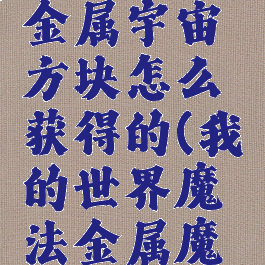 金属宇宙
方块怎么
获得的(我
的世界魔
法金属魔